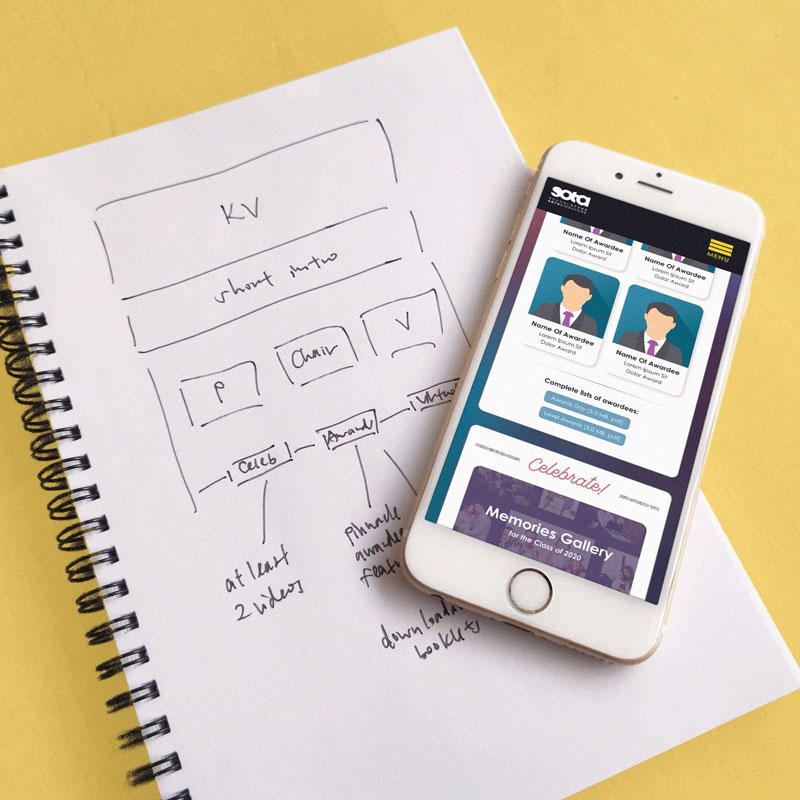 KV
short intro
P
Chair
V
Celeb
Award
at least
2 videos
pinnacle
bookl
sota
MENU
Name Of Awardee
Lorem Ipsum Sit
Dolor Award
Name Of Awardee
Lorem Ipsum Sit
Dolor Award
Name Of Awardee
Lorem Ipsum Sit
Dolor Award
Name Of Awardee
Lorem Ipsum Sit
Dolor Award
Complete lists of awardees:
Awards Day (5.0 MB, pdf)
Level Awards (3.0 MB, pdf)
Celebrate!
Memories Gallery
for the Class of 2020